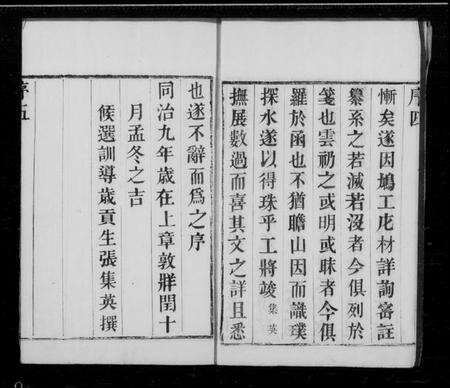 序四
慚矣遂因鳩工庀材詳詢審註
纂系之若滅若沒者今俱列於
箋也雲礽之或明或昧者今俱
羅於函也不猶瞻山因而識璞
探水遂以得珠乎工將竣集英
撫展數過而喜其文之詳且悉
也遂不辭而爲之序
同治九年歲在上章敦牂閏十
月孟冬之吉
候選訓導歲貢生張集英撰
序五